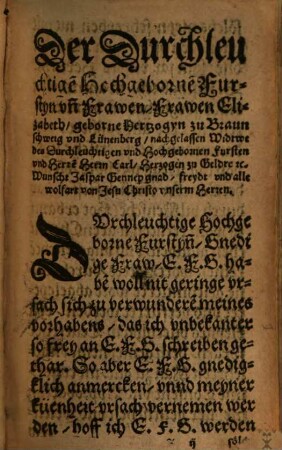 Der Durchleu
chtigē Hochgebornē Fur-
styn vñ Frawen/ Frawen Eli-
zabeth/ geborne Hertzogyn zu Braun
schweig vnd Lünenberg/ nachgelassen Widtwe
des Durchleuchtigen vnd Hochgebornen Fursten
vnd Herrē Herrn Carl/ Hertzogen zu Geldre ꝛc.
Wunscht Jaspar Gennep gnad/ freydt vnd alle
wolfart von Jesu Christo vnserm Herren.
DVrchleuchtige Hochge
borne Furstyñ/ Gnedi
ge Fraw/ E. F. G. ha-
bē woll nit geringe vr-
sach sich zu verwunderē meines
vorhabens/ das ich vnbekanter
so frey an E. F. G. schreiben ge-
thar. So aber E. F. G. gnedig-
klich anmercken/ vnnd meyner
küenheit vrsach vernemen wer
den/ hoff ich E. F. G. werden
ij